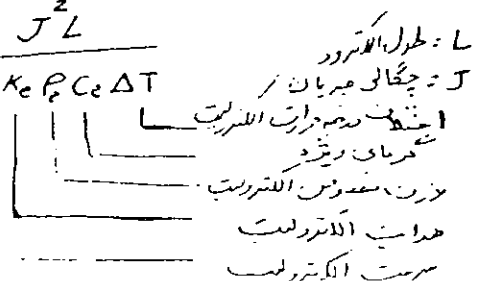 J²L
Kₑ ρₑ Cₑ ΔT
L : طول الکترود
J : چگالی جریان
اختلاف درجه حرارت الکترولیت
گرمای ویژه
وزن مخصوص الکترولیت
هدایت الکترولیت
سرعت الکترولیت